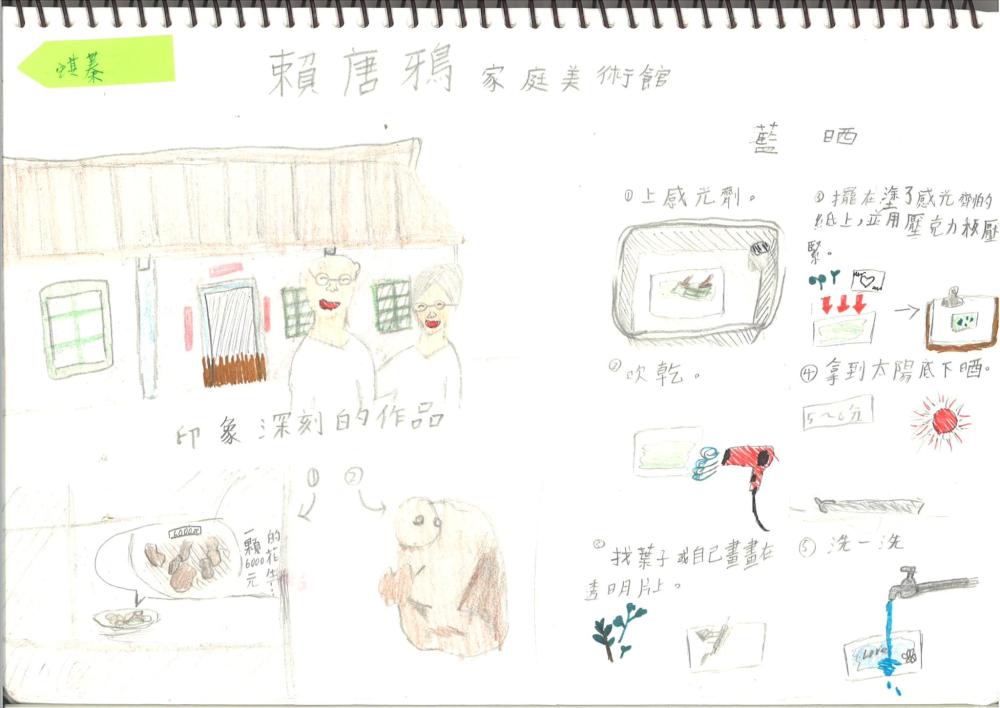 賴唐鴉 家庭美術館
藍 晒
①上感光劑。
擺在塗了感光劑的
紙上，並用壓克力板壓
緊。
②吹乾。
④拿到太陽底下晒。
5~6分
印象深刻的作品
① ②
一顆6000元
的花生！
6000元
找葉子或自己畫畫在
透明片上。
⑤洗一洗
Love